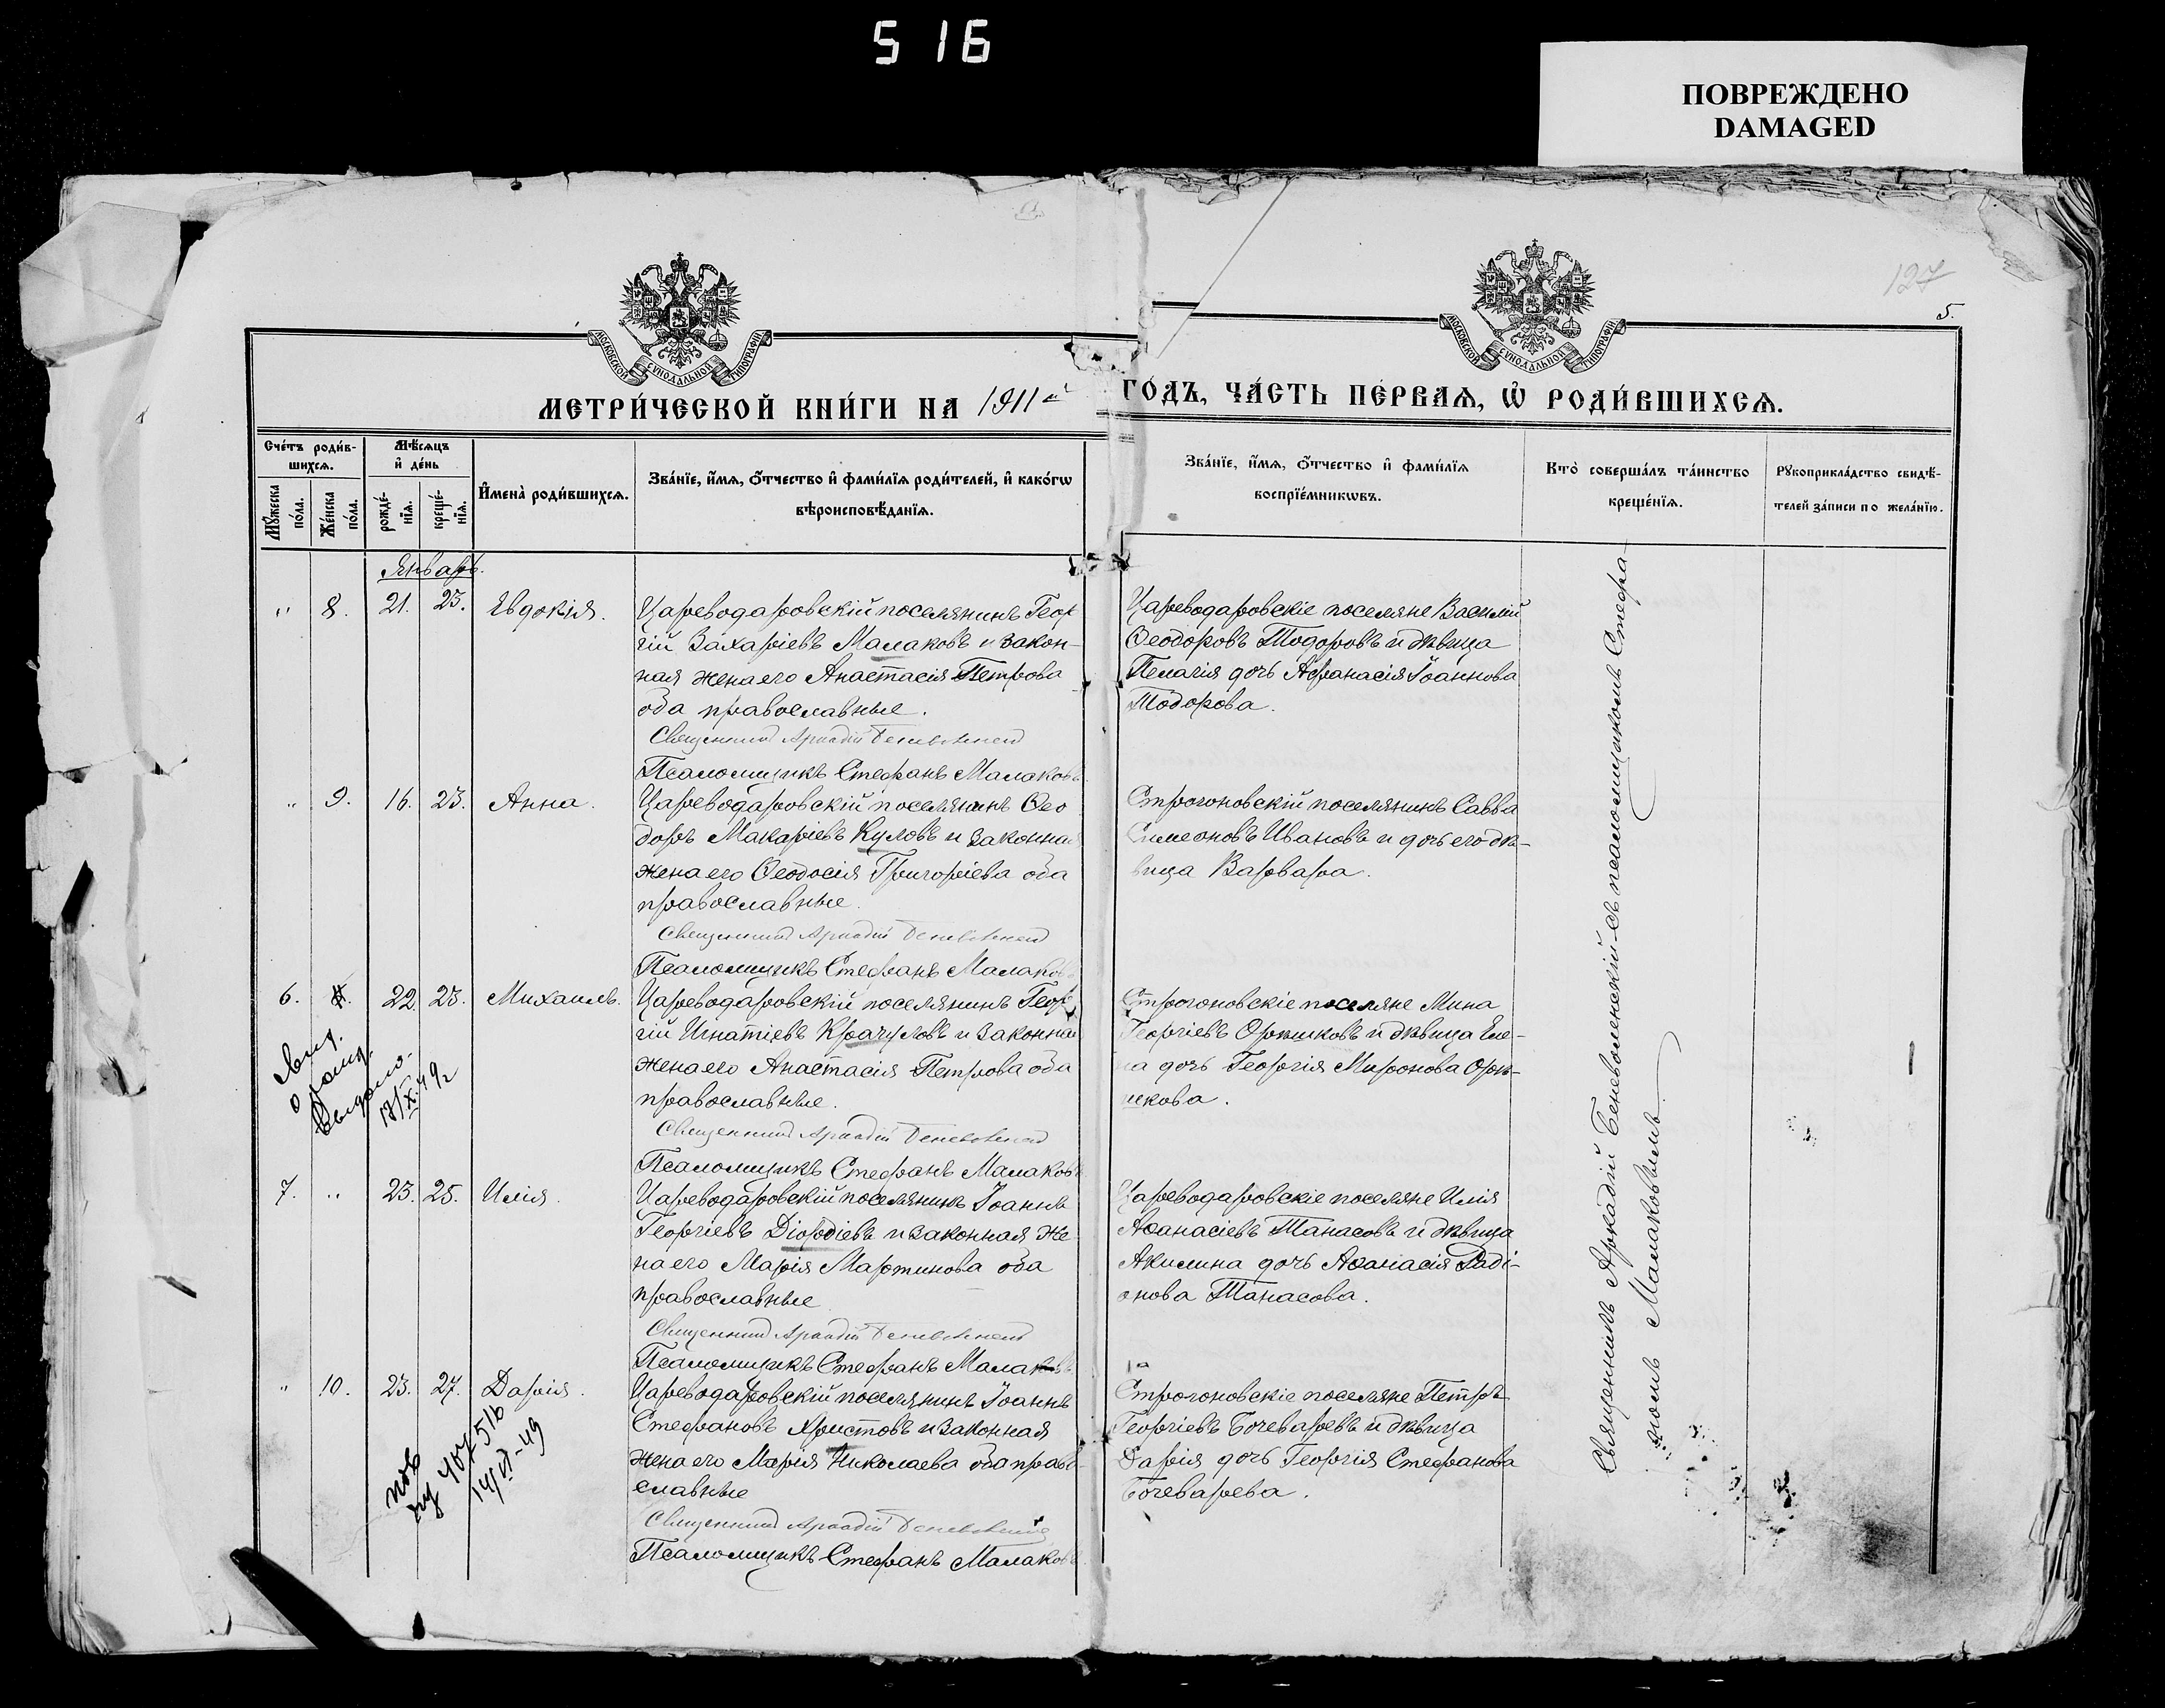 516
ПОВРЕЖДЕНО
DAMAGED
127
5.
МОСКОВСКОЙ СУНОДАЛЬНОЙ ТИПОГРАФІИ
МОСКОВСКОЙ СУНОДАЛЬНОЙ ТИПОГРАФІИ
МЕТРИ́ЧЕСКОЙ КНИ́ГИ НА 1911й ГО́ДЪ, ЧА́СТЬ ПЕ́РВАѦ, Ѡ҆ РОДИ́ВШИХСѦ.
Сче́тъ роди́в-
шихсѧ.
Мꙋ́жеска по́ла.
Же́нска по́ла.
Мѣ́сѧцъ
и҆ де́нь
рожде́-
нїѧ.
креще́-
нїѧ.
И҆мена̀ роди́вшихсѧ.
Зва́нїе, и҆́мѧ, ѻ҆́тчество и҆ фами́лїѧ роди́телей, и҆ како́гѡ
вѣроисповѣ́данїѧ.
Зва́нїе, и҆́мѧ, ѻ҆́тчество и҆ фами́лїѧ
воспрїе́мникѡвъ.
Кто̀ соверша́лъ та́инство
креще́нїѧ.
Рꙋкоприкла́дство свидѣ́-
телей за́писи по жела́нїю.
Январь.
" 8. 21. 23. Евдокія.
Цареводаровскій поселянинъ Геор
гій Захаріевъ Малаковъ и закон-
ная жена его Анастасія Петрова
оба православные.
Священник Аркадій Беневоленский
Псаломщикъ Стефанъ Малаковъ
Цареводаровскіе поселяне Василій
Ѳеодоровъ Тодоровъ и дѣвица
Пелагія дочь Аѳанасія Іоаннова
Тодорова.
" 9. 16. 23. Анна.
Цареводаровскій поселянинъ Ѳео
доръ Макаріевъ Куловъ и законная
жена его Ѳеодосія Григоріева оба
православные.
Священник Аркадій Беневоленский
Псаломщикъ Стефанъ Малаковъ
Строгоновскій поселянинъ Савва
Симеоновъ Ивановъ и дочь его дѣ-
вица Варвара.
6. 22. 23. Михаилъ.
Цареводаровскій поселянинъ Геор
гій Игнатіевъ Крачуловъ и законная
жена его Анастасія Петрова оба
православные.
Священник Аркадій Беневоленский
Псаломщикъ Стефанъ Малаковъ
Строгоновскіе поселяне Мина
Георгіевъ Орѣшковъ и дѣвица Еле-
на дочь Георгія Миронова Орѣ-
шкова.
выдано.
7. " 23. 25. Илія.
Цареводаровскій поселянинъ Іоаннъ
Георгіевъ Діордіевъ и законная же
на его Марія Мартинова оба
православные
Священник Аркадій Беневоленский
Псаломщикъ Стефанъ Малаковъ
Цареводаровскіе поселяне Илія
Аѳанасіевъ Танасовъ и дѣвица
Акилина дочь Аѳанасія Раді-
онова Танасова.
" 10. 23. 27. Дарія.
Цареводаровскій поселянинъ Іоаннъ
Стефановъ Христовъ и законная
жена его Марія Николаева оба право-
славные
Священник Аркадій Беневоленский
Псаломщикъ Стефанъ Малаковъ
Строгоновскіе поселяне Петръ
Георгіевъ Бочеваревъ и дѣвица
Дарія дочь Георгія Стефанова
Бочеварева.
14/VI-49
Священникъ Аркадій Беневоленскій съ псаломщикомъ Стефа
номъ Малаковымъ.